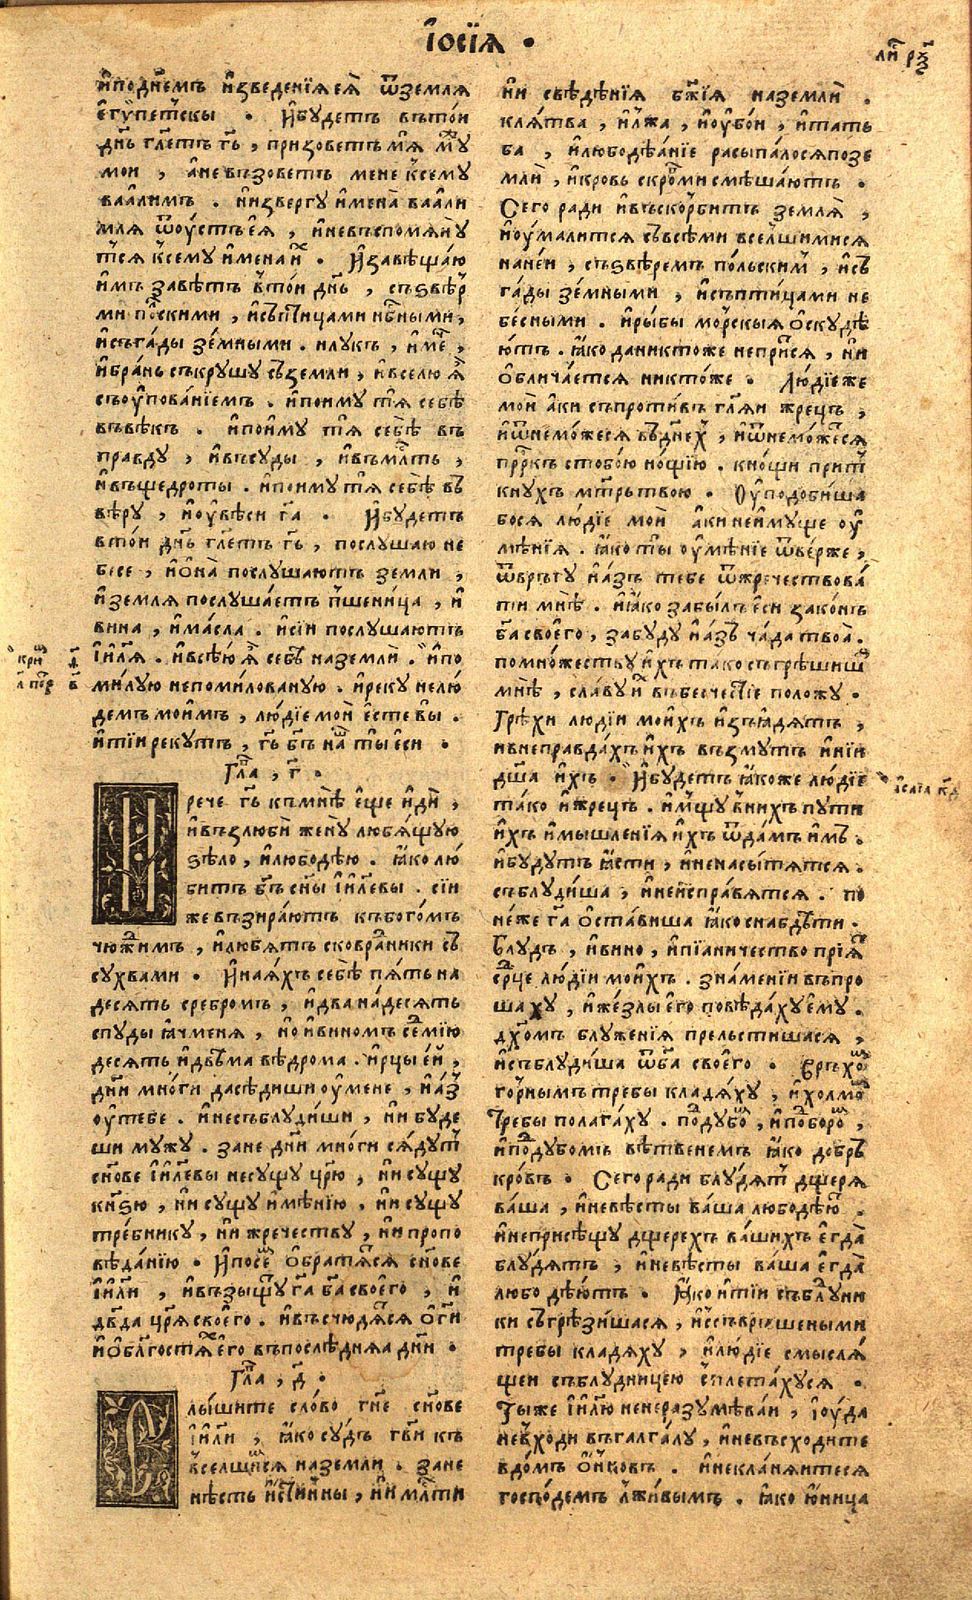 І҆осїѧ •
ли҃ рѯ҃з
и҆поднемъ и҆зведенїѧ еѧ̀ ѿземлѧ
е҆гѵпетскы • И҆будетъ вътои
дн҃ь гл҃етъ гь҃, призоветъ мѧ̀ мꙋ
мои, а҆не възоветъ мене ксему
ваа́лимъ. и҆и҆звергу и҆мена̀ ваали
млѧ ѿоу҆стъ еѧ̀, и҆невъспомѧну
тсѧ ксему и҆мена и҆х • И҆завѣщаю
и҆мъ завѣтъ втои дн҃ь, съѕвѣр
ми пꙍскими, и҆съптицами нб҃ными,
и҆съга́ды зе́мными. илукъ, и҆ме҃,
и҆бра́нь съкрушу съземли, и҆вселю ѧ҆
съоу҆пова́нїемъ. и҆поиму тѧ̀ себѣ
въвѣкъ. и҆пои́му тѧ̀ себѣ въ
правду, и҆въсуды, и҆въмл҃ть,
и҆въщедроты. и҆поиму тѧ̀ себѣ въ
вѣру, и҆оу҆вѣси га҃ • И҆будетъ
втои дн҃ь гл҃етъ гь҃, послушаю не
бесе, и҆ѻ҆на̀ послушаютъ земли,
и҆землѧ послуша́етъ пшеница, и҆
вина, и҆ма́сла. и҆сїи послушаютъ
і҆и҃лѧ. и҆всѣю ѧ҆ себѣ наземли. и҆по
ми́лую непоми́лованую. и҆реку нелю́
демъ мои҆мъ, лю́дїе мои̑ е҆сте вы̀.
и҆тїи рекутъ, гь҃ бъ҃ на́ш ты̀ еси •
Гла, г҃.
И рече гь҃ къмнѣ е҆ще и҆ди̑,
и҆възлюби̑ жену̀ любѧ́щую
ѕѣло, и҆любодѣю. ꙗ҆ко лю
битъ бъ҃ сн҃ы і҆и҃левы. сїи
же възира́ютъ къбого́мъ
чюжимъ, и҆лю́бѧтъ сковраники съ
сухвами. И҆наѧ́хъ себѣ пѧ́ть на
десѧть сребромъ, и҆два на́десѧть
спуды ꙗ҆чменѧ, и҆о и҆виномъ се́мїю
десѧть и҆двѣма вѣдрома. и҆рцы е҆и,
дни̑ мно́ги дасѣдиши оу҆мене, и҆а́з
оу҆тебе. и҆несъблуди́ши, ни́ буде
ши мужу. зане дни̑ мно́ги сѧ́дут
сн҃ове і҆и҃левы несущу цр҃ю, ни́ сущу
кн҃ѕю, ни́ сущу и҆мѣнїю, ни́ сущу
тре́бнику, ни́ жречеству, ни́ пропо
вѣданїю. И҆посем ѻ҆братѧтсѧ сн҃ове
і҆и҃ли, и҆възыщут га҃ ба҃ своего̀, и҆
дв҃да цр҃ѧ своего̀. и҆въсчюдѧтсѧ ѻ҆ ги҃
и҆ѻ҆ благости его̀ въпослѣднѧѧ дни̑.
Гла, д҃.
С лы́шите сло́во гн҃е сн҃ове
і҆и҃ли, ꙗ҆ко суд гв҃и къ
вселшисѧ наземли. зане
нѣсть и҆стинны, ни́ мл҃ти
ни́ свѣдѣнїѧ бж҃їѧ наземли.
клѧтва, и҆лжа, и҆оу҆бои, и҆тать
ба, и҆любодѣѧ́нїе расыпа́лосѧпозе
мли, и҆кровь скро́вми смѣша́ютъ.
Сего ради и҆въско́рбитъ землѧ̀,
и҆оу҆малитсѧ съвсѣми вселшимисѧ
нане́и, съѕвѣремъ по́льским, и҆съ
га́ды зе́мными, и҆съпти́цами не
бе́сными. и҆ры́бы морскыѧ ѻ҆скудѣ
ютъ. ꙗ҆ко даникто́же неприсѧ, ни́
ѻ҆блича́етсѧ никто́же. Лю́дїеже
мои̑ а҆ки съпроти́въ гл҃ѧи жрецъ,
и҆и҆знемо́жесѧ въднех, и҆и҆знемо́жесѧ
пр҃ркъ стобо́ю но́щїю. кно́щи прит
кнухъ мт҃рьтвою. Оу҆подоби́ша
босѧ лю́дїе мои̑ а҆ки неи҆муще оу҆
мѣнїѧ. ꙗ҆ко ты̀ оу҆мѣнїе ѿве́рже,
ѿврьгу и҆а́зъ тебе ѿжречествова́
ти мнѣ. и҆ꙗ҆ко забы́лъ еси̑ зако́нъ
ба҃ своего̀, забуду и҆а́зъ ча́да твоѧ̀.
помно́жеству и҆хъ та́ко съгрѣшиша
мнѣ, сла́ву их въбесчестїе положу.
Грѣхи людїи мои́хъ и҆зъꙗ҆дѧтъ,
ивнеправда́хъ и҆хъ възмутъ и҆нїи
дш҃а и҆хъ. И҆бу́детъ ꙗ҆коже лю́дїе
та́ко и҆жрецъ. и҆мщу̀ вних пути
и҆хъ и҆мышленїѧ и҆хъ ѿда́мъ и҆мъ.
и҆будутъ ꙗ҆сти, и҆ненасы́тѧтсѧ.
съблуди́ша, и҆неи҆спра́вѧтсѧ. по
не́же га҃ ѻ҆ста́виша ꙗ҆ко снабдѣти.
Блудъ, и҆вино, и҆пїа́ничество прїѧт
ср҃це лю́дїи мои́хъ. зна́менїи въпро
шаху, и҆же́злы его̀ повѣда́ху ему̀.
дх҃омъ блуженїѧ прельстишасѧ,
и҆съблуди́ша ѿба҃ своего̀. Връхо
го́рнымъ требы кладѧ́ху, и҆холмо
требы полага́ху. подубо, и҆побо́ро,
и҆подубомъ вѣтвенемъ ꙗ҆ко добръ
кро́въ. Сего ради блудѧт дщерѧ
ва́ша, и҆невѣсты ва́ша любодѣю.
и҆неприсѣщу дщерехъ ва́шихъ е҆гда̀
блу́дѧтъ, и҆невѣсты ва́ша е҆гда̀
любо дѣютъ. ꙗ҆ко и҆тїи съблудни
ки съгрѣзи́шасѧ, и҆съвръшеными
требы кладѧху, и҆лю́дїе смыслѧ́
щеи съблудницею съплета́хусѧ.
Ты́же і҆и҃лю ненеразумѣваи, і҆оуда
невходи въгалга́лу, и҆невъсходите
вдо́мъ ѻ҆нковъ. и҆неклани́итесѧ
госпо́демъ лжи́вымъ. ꙗ҆ко ю҆ница